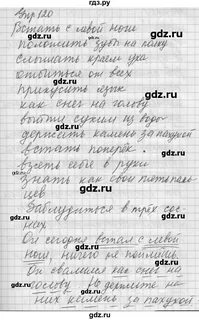 Упр 120
Встать с левой ноги
положить зубы на полку
слышать краем уха
отбиться от всех
прикусить язык
как снег на голову
выйти сухим из воды
держать камень за пазухой
встать поперёк.
взять себя в руки
Знать как свои пять паль-
цев
Заблудиться в трёх сос-
нах
Он сегодня встал с левой
ноги, ничего не поешь.
Он свалился как снег на
голову Вы держите на
них камень за пазухой
gdz.ru
gdz.ru
gdz.ru
gdz.ru
gdz.ru
gdz.ru
gdz.ru
gdz.ru
gdz.ru
gdz.ru